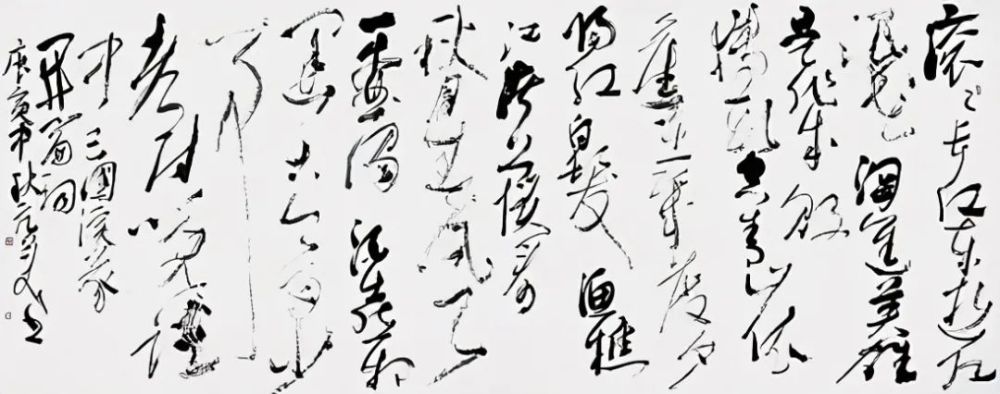 滚滚长江东逝水
浪花淘尽英雄
是非成败
转头空青山依
旧在几度夕
阳红白发渔樵
江渚上惯看
秋月春风
一壶浊酒喜相
逢古今多少
事
都付笑谈
中三國演义
开篇词
庚寅中秋